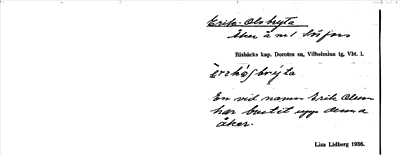 Erik-Ols bryta
Åker å n:1 Bäsjors
Risbäcks kap. Dorotea sn, Vilhelmina tg, Vbt. l.
En vid namn Erik Olsson
har brutit upp denna
åker.
Liza Lidberg 1936.